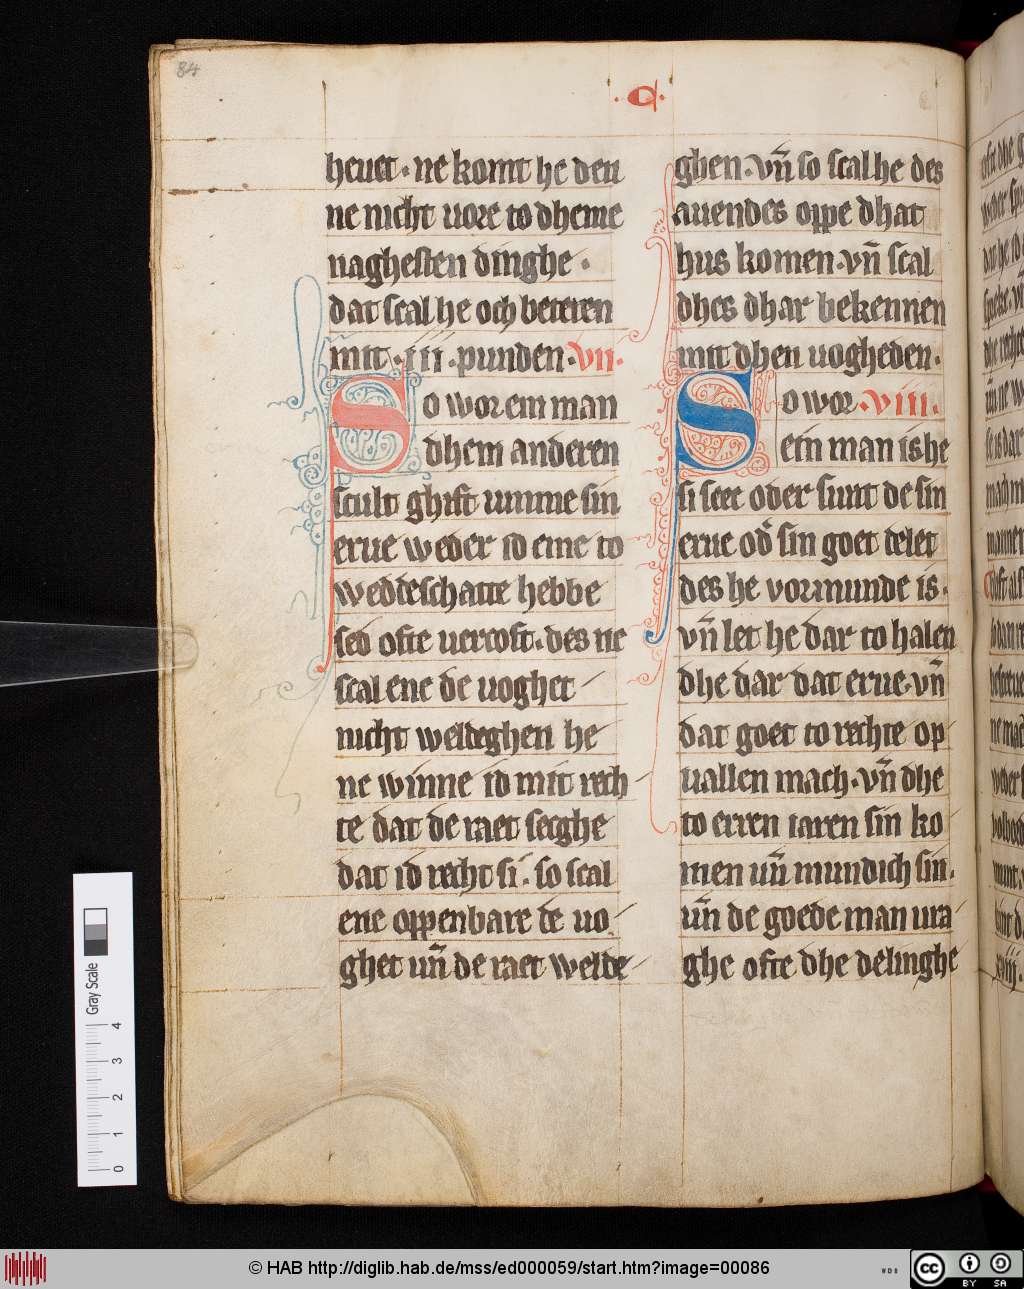 84
.Q.
heuet · ne komt he den
ne nicht uore to dheme
naghesten dinghe ·
dat scal he och beteren
mit · iii · punden · vii ·
So wor em man
dhem anderen
scult ghift umme sin
erue weder id eme to
weddeschatte hebbe
sed ofte uercoft · des ne
scal ene de uoghet
nicht weldeghen he
ne winne id mit rech
te dat de raet secghe
dat id recht si · so scal
ene oppenbare de uo
ghet un̄ de raet welde
ghen · vn̄ so scal he des
auendes oppe dhat
hus komen · vn̄ scal
dhes dhar bekennen
mit dhen uogheden ·
So wor · viii ·
ein man is he
si seec oder sunt de sin
erue od' sin goet delet
des he vormunde is ·
vn̄ let he dar to halen
dhe dar dat erue · vn̄
dat goet to rechte op
uallen mach · vn̄ dhe
to erren iaren sin ko
men un̄ mundich sin ·
un̄ de goede man ura
ghe ofte dhe delinghe
Gray Scale
0 1 2 3 4
© HAB http://diglib.hab.de/mss/ed000059/start.htm?image=00086
WDB
cc BY SA